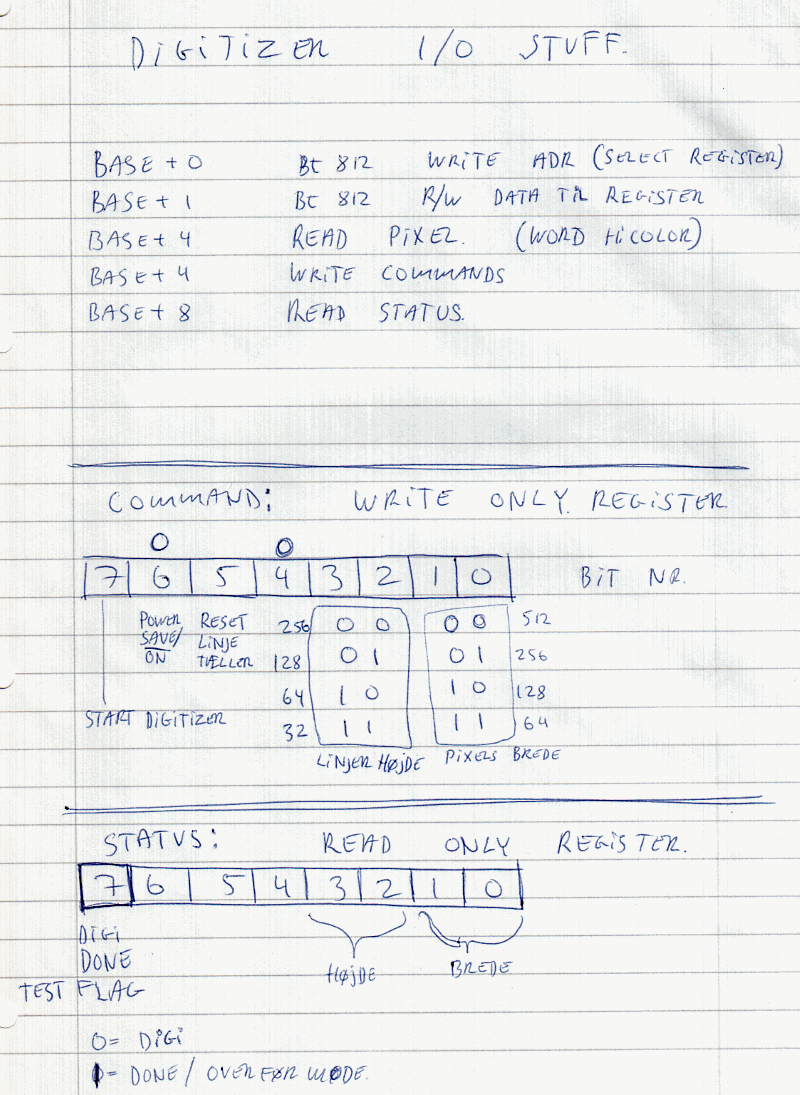 DIGITIZER I/O STUFF.
BASE + 0 Bt 812 WRITE ADR (SELECT REGISTER)
BASE + 1 Bt 812 R/W DATA TIL REGISTER
BASE + 4 READ PIXEL. (WORD HICOLOR)
BASE + 4 WRITE COMMANDS
BASE + 8 READ STATUS.
COMMAND: WRITE ONLY. REGISTER
0 0
7 6 5 4 3 2 1 0 BIT NR.
POWER RESET 256 0 0 0 0 512
SAVE/ LINJE
ON TÆLLER 128 0 1 0 1 256
64 1 0 1 0 128
START DIGITIZER 32 1 1 1 1 64
LINJER HØJDE PIXELS BREDE
STATUS: READ ONLY REGISTER.
7 6 5 4 3 2 1 0
DIGI
DONE HØJDE BREDE
TEST FLAG
0= DIGI
1= DONE / OVERFØR MODE.